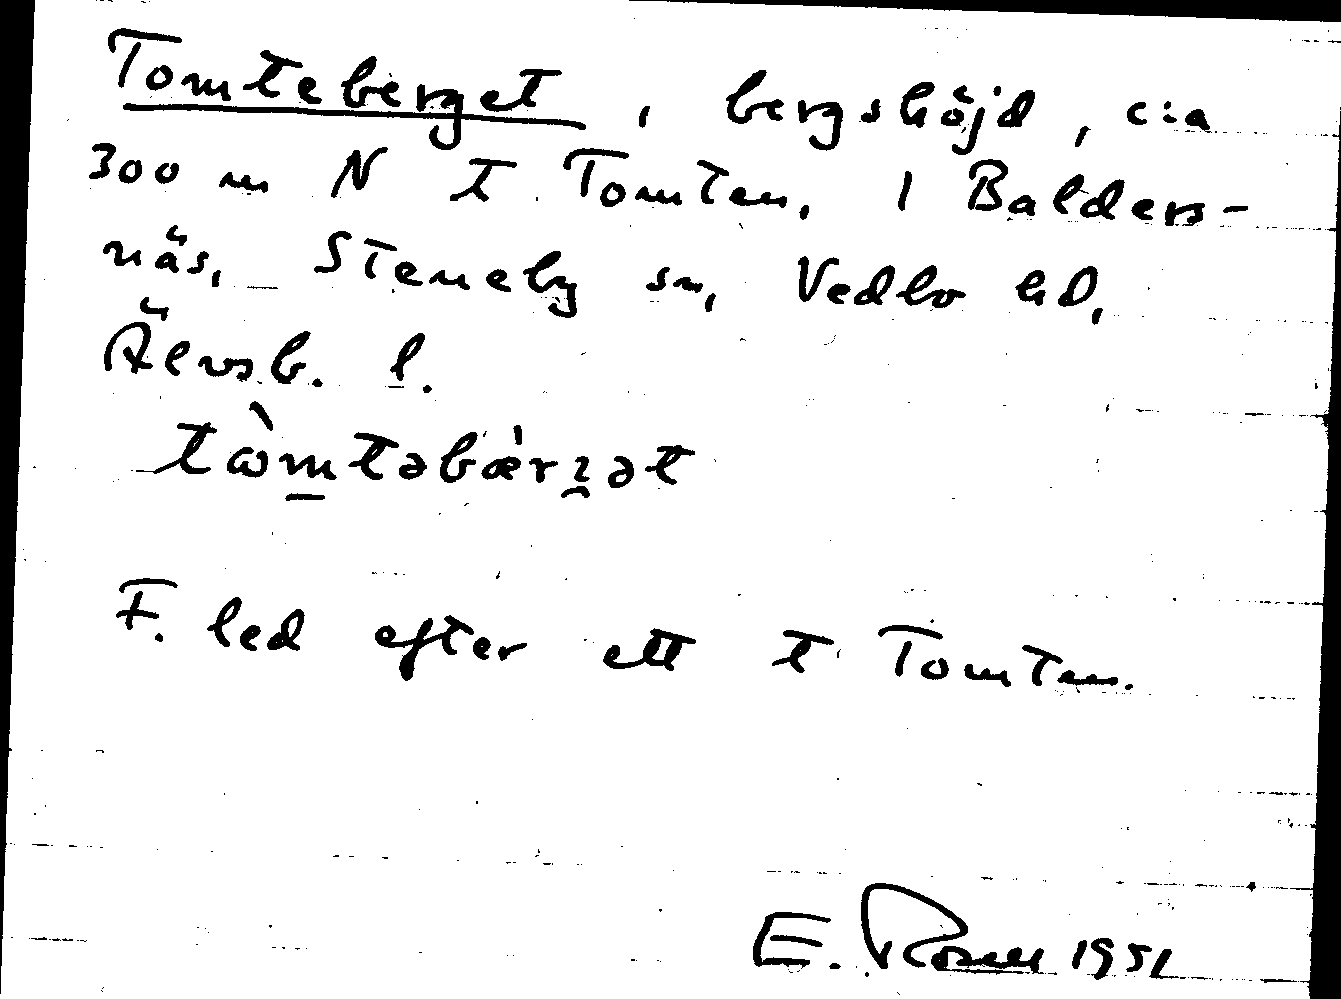 Tomteberget, bergshöjd, c:a
300 m N t Tomten, 1 Balders-
näs, Steneby sn, Vedbo hd,
Älvsb. l.
tò̀m̲təbæ̀rʒət
F. led efter ett t Tomten.
E. Rosell 1951